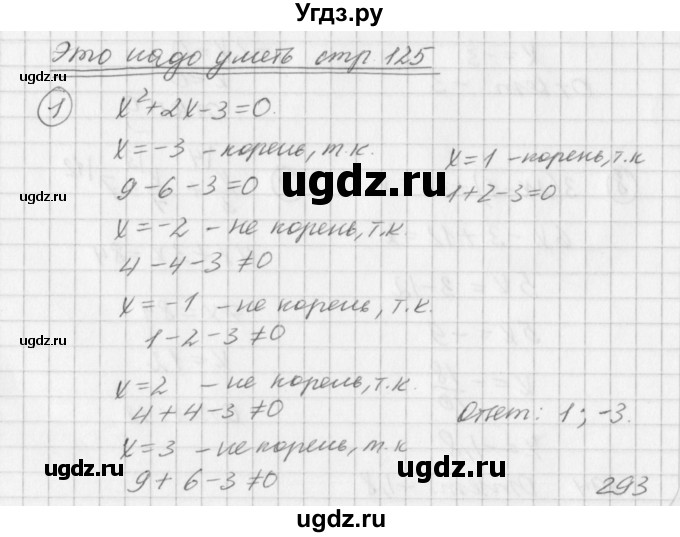 Угдз.ру
Это надо уметь стр. 125
1 x²+2x-3=0.
x=-3 - корень, т.к.
9-6-3=0
x=1 - корень, т.к
1+2-3=0
x=-2 - не корень, т.к.
4-4-3≠0
x=-1 - не корень, т.к.
1-2-3≠0
x=2 - не корень, т.к.
4+4-3≠0
Ответ: 1; -3.
x=3 - не корень, т.к
9+6-3≠0
293
ugdz.ru
ugdz.ru
ugdz.ru
ugdz.ru
ugdz.ru
ugdz.ru
ugdz.ru
ugdz.ru
ugdz.ru
ugdz.ru